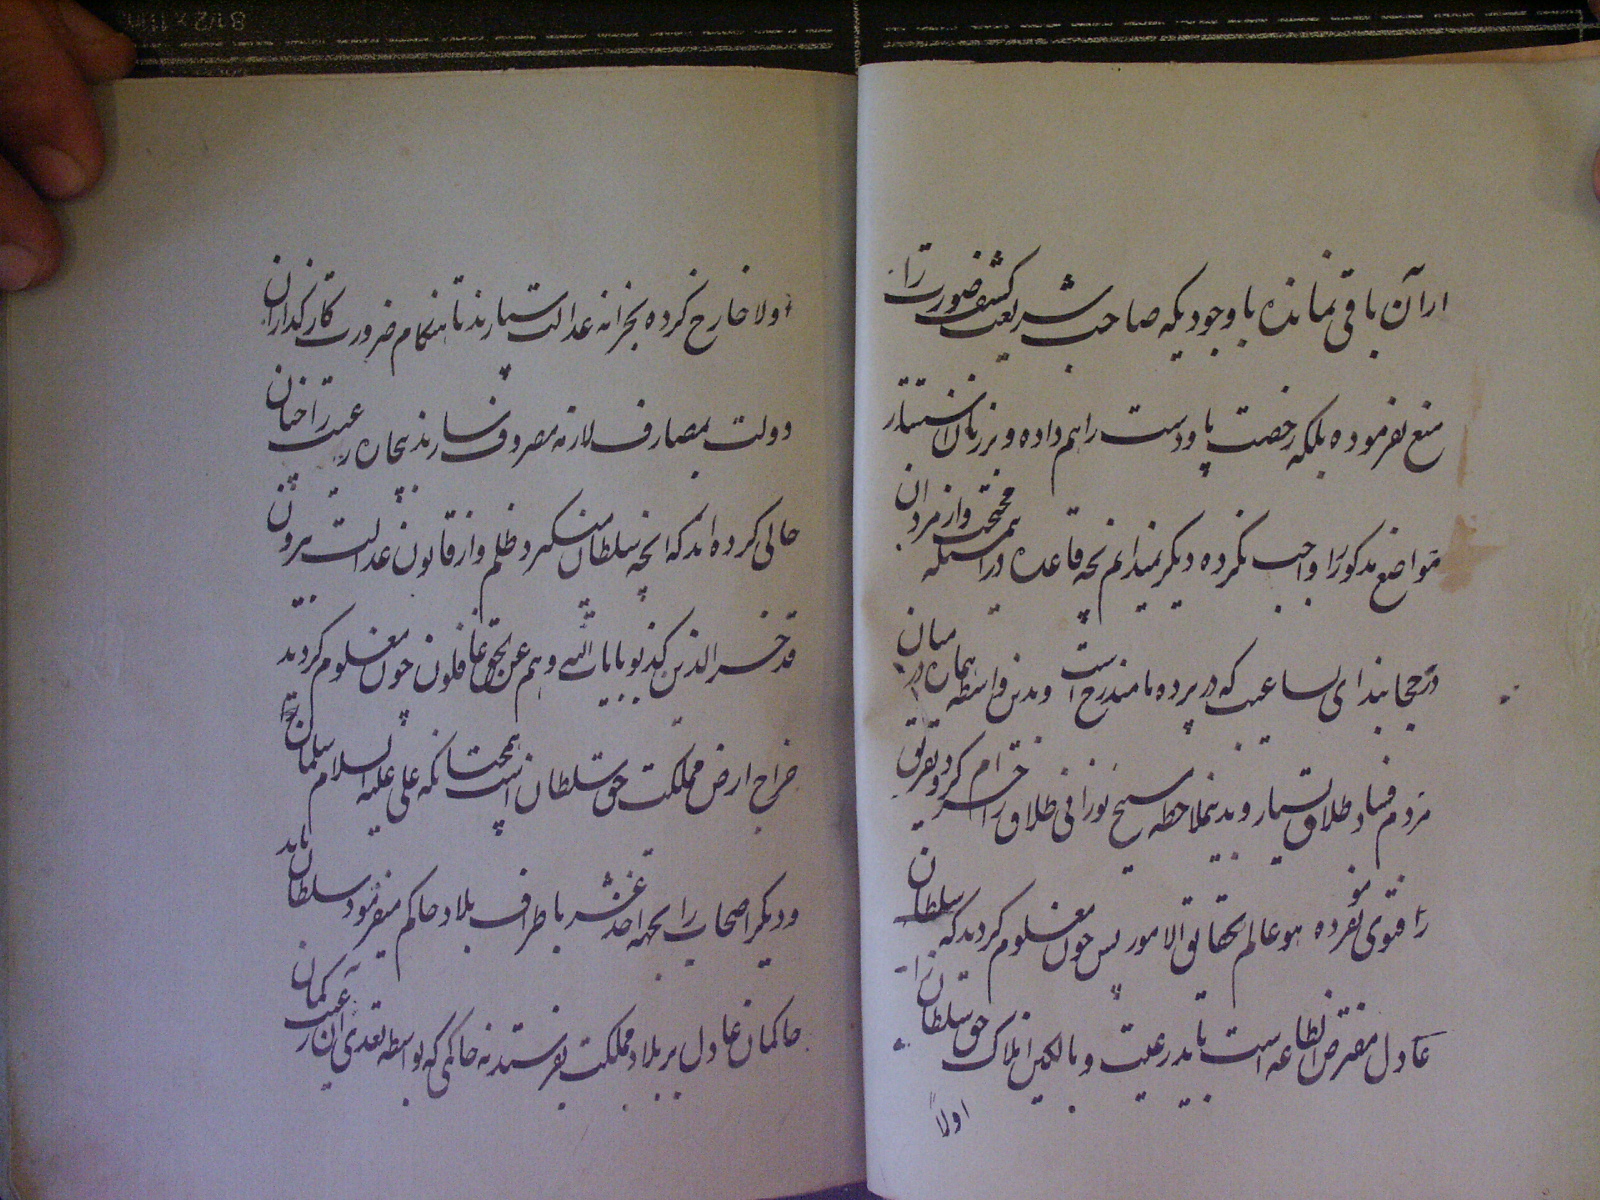 از آن باقی نمانده با وجودیکه صاحب شریعت کشف صورت را
منع نفرموده بلکه رخصت پا و دست را هم داده و بر زنان استتار
مواضع مذکور را واجب نکرده دیگر نمیدانم بچه قاعده در این مسئله
در حجابند ای بسا عیب که در پرده ها مندرج است و بدین واسطه همه ماه در میان
مردم فساد و طلاق بسیار و بدینملاحظه مسیح نورانی طلاق را حرام کرد و تفریق
را فتوی نفرموده هو عالم بحقائق الامور پس چون معلوم کردید که سلطان
عادل مفترض الطاعه است باید رعیت و مالکین املاک حق سلطان را
اولاً
اولا خارج کرده بخزانه عدالت سپارند تا هنگام ضرورت کارگذاران
دولت بمصارف لازمه مصروف سازند بیچاره رعیت را چنان
حالی کرده اند که آنچه سلطان میگیرد ظلم و از قانون عدالت بیرون
قد خسر الذین کذبوا بایات الله و هم عن الحق غافلون چون معلوم کردید
خراج ارض مملکت حق سلطان است چنانکه علی علیه السلام سلمان
و دیگر اصحاب را بجهة اخذ عشر باطراف بلاد حاکم میفرمود سلطان باید
حاکمان عادل بر بلاد مملکت بفرستد نه حاکمی که بواسطه تعدی آن رعیت کمان